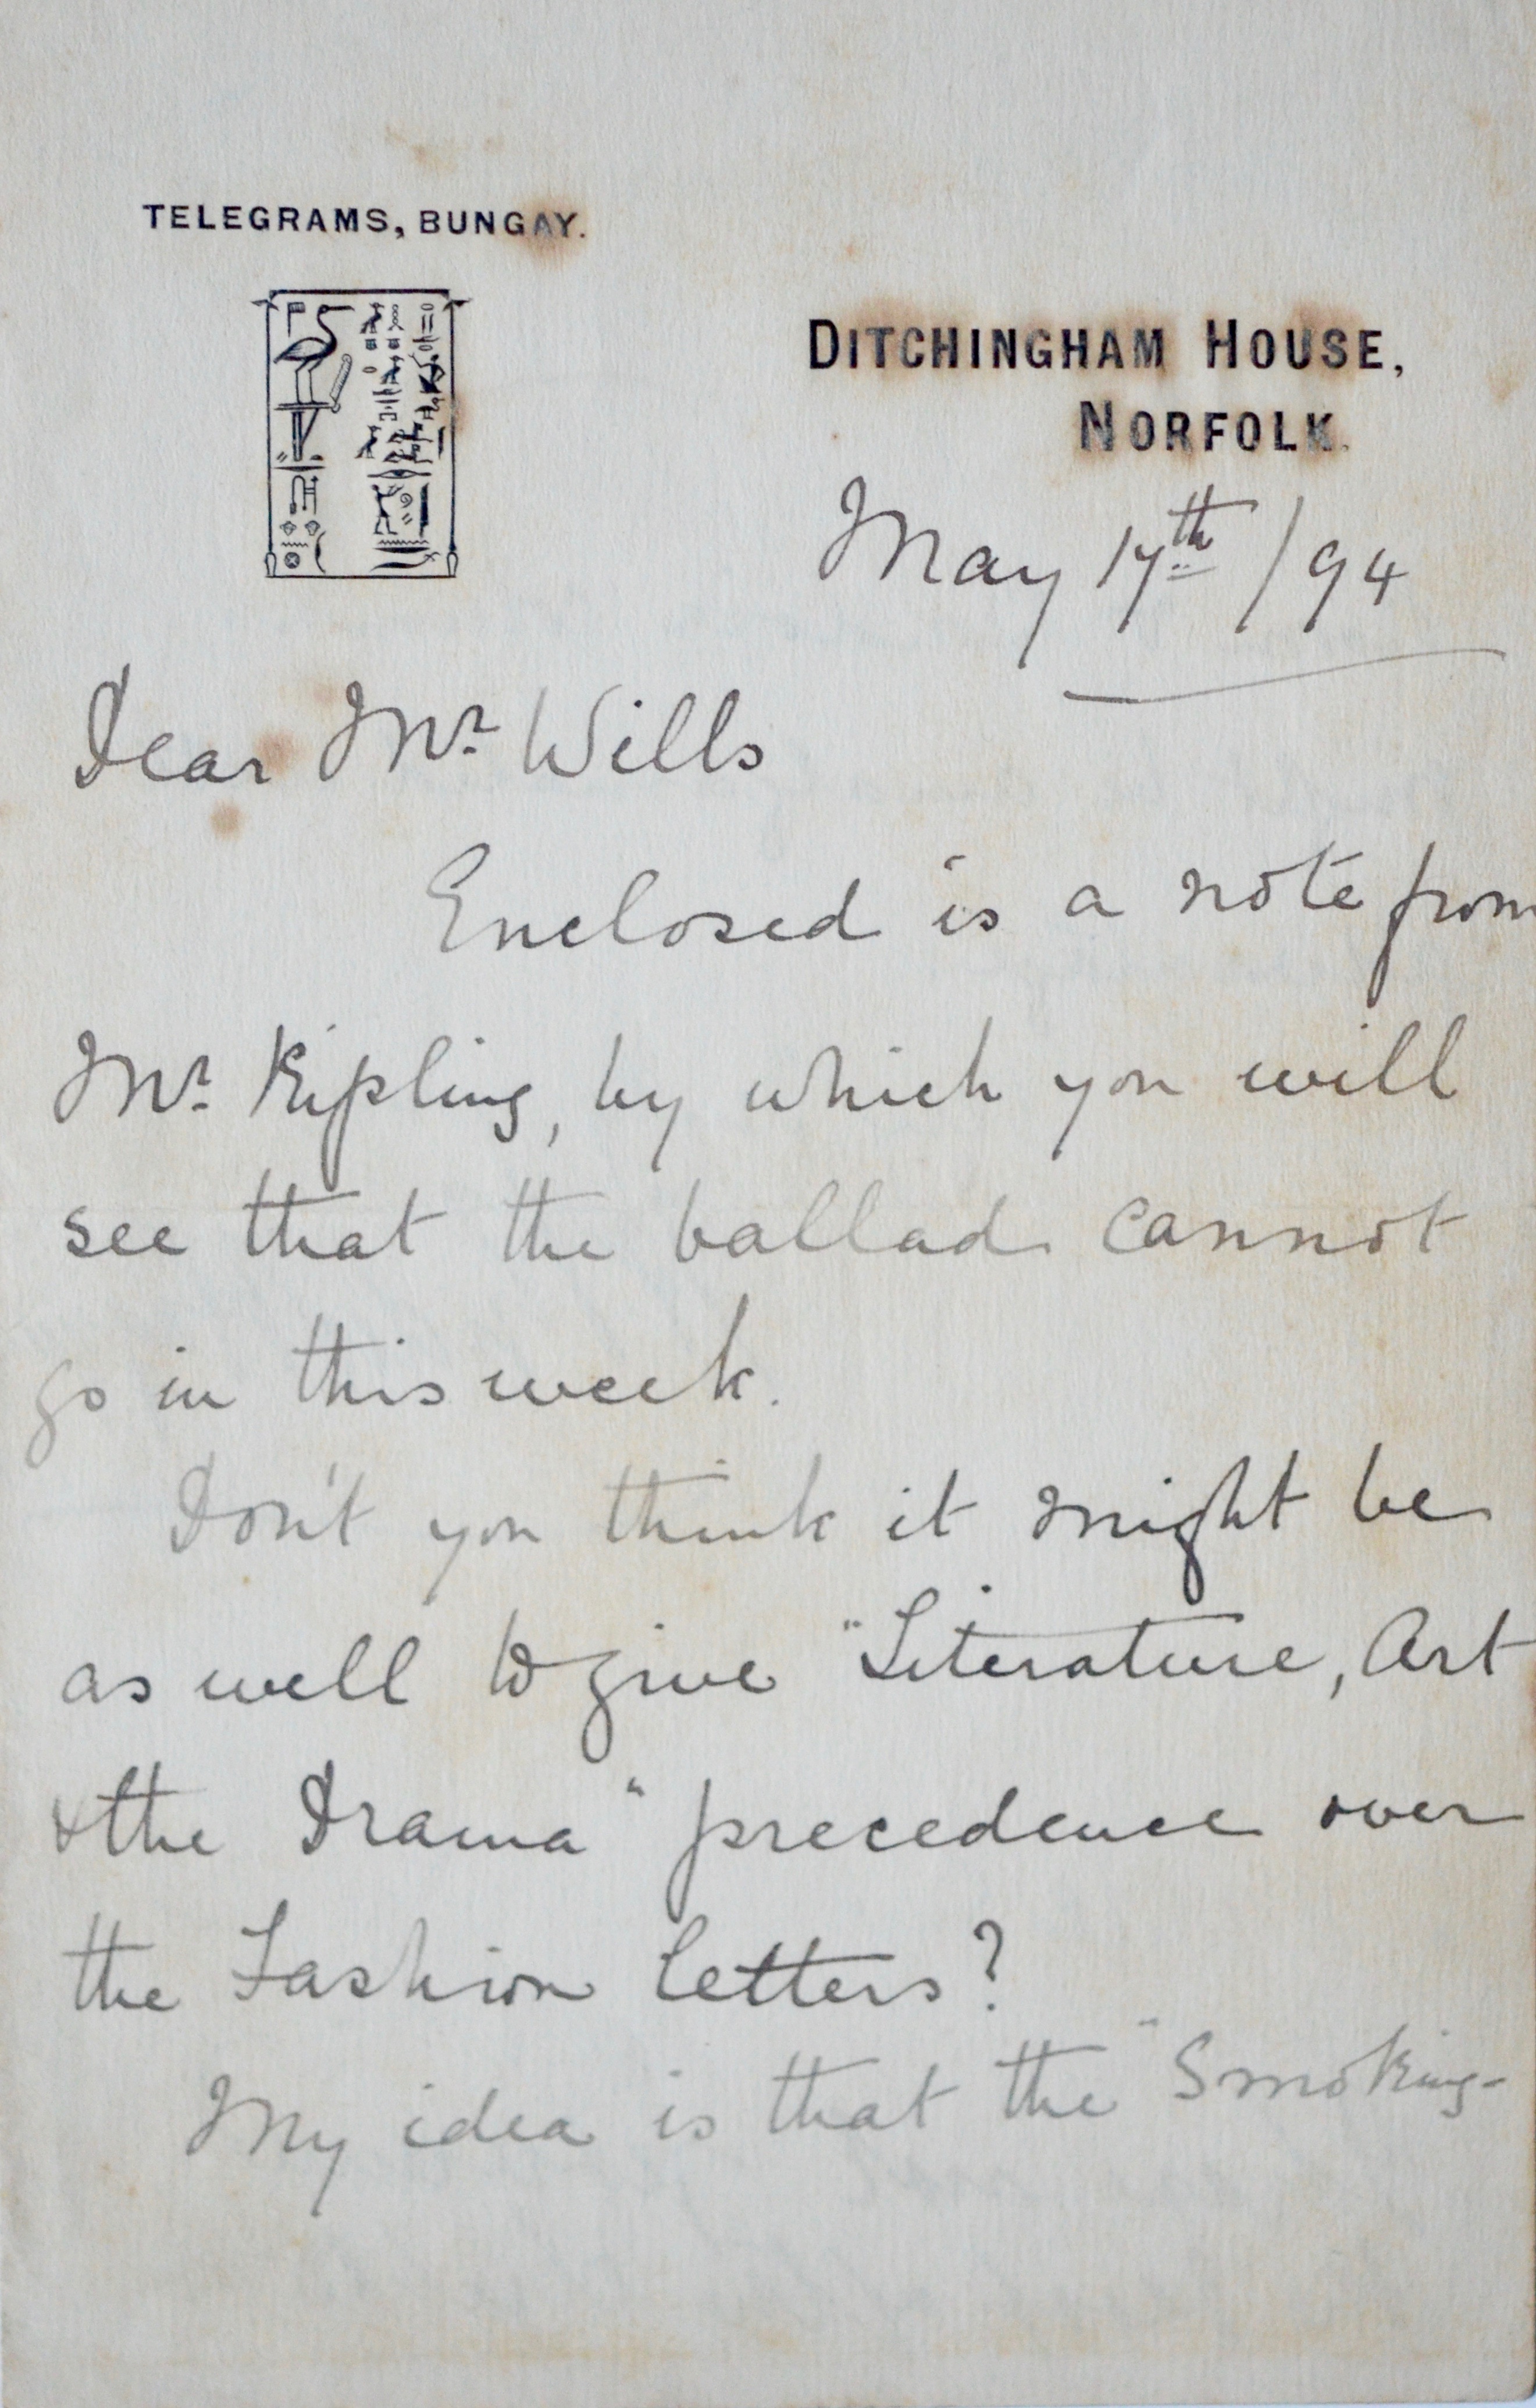 TELEGRAMS, BUNGAY.
DITCHINGHAM HOUSE,
NORFOLK.
May 17th /94
Dear Mr. Wills
Enclosed is a note from
Mr. Kipling, by which you will
see that the ballad cannot
go in this week.
Don't you think it might be
as well to give "Literature, Art
& the Drama" precedence over
the Fashion letters?
My idea is that the "Smoking-